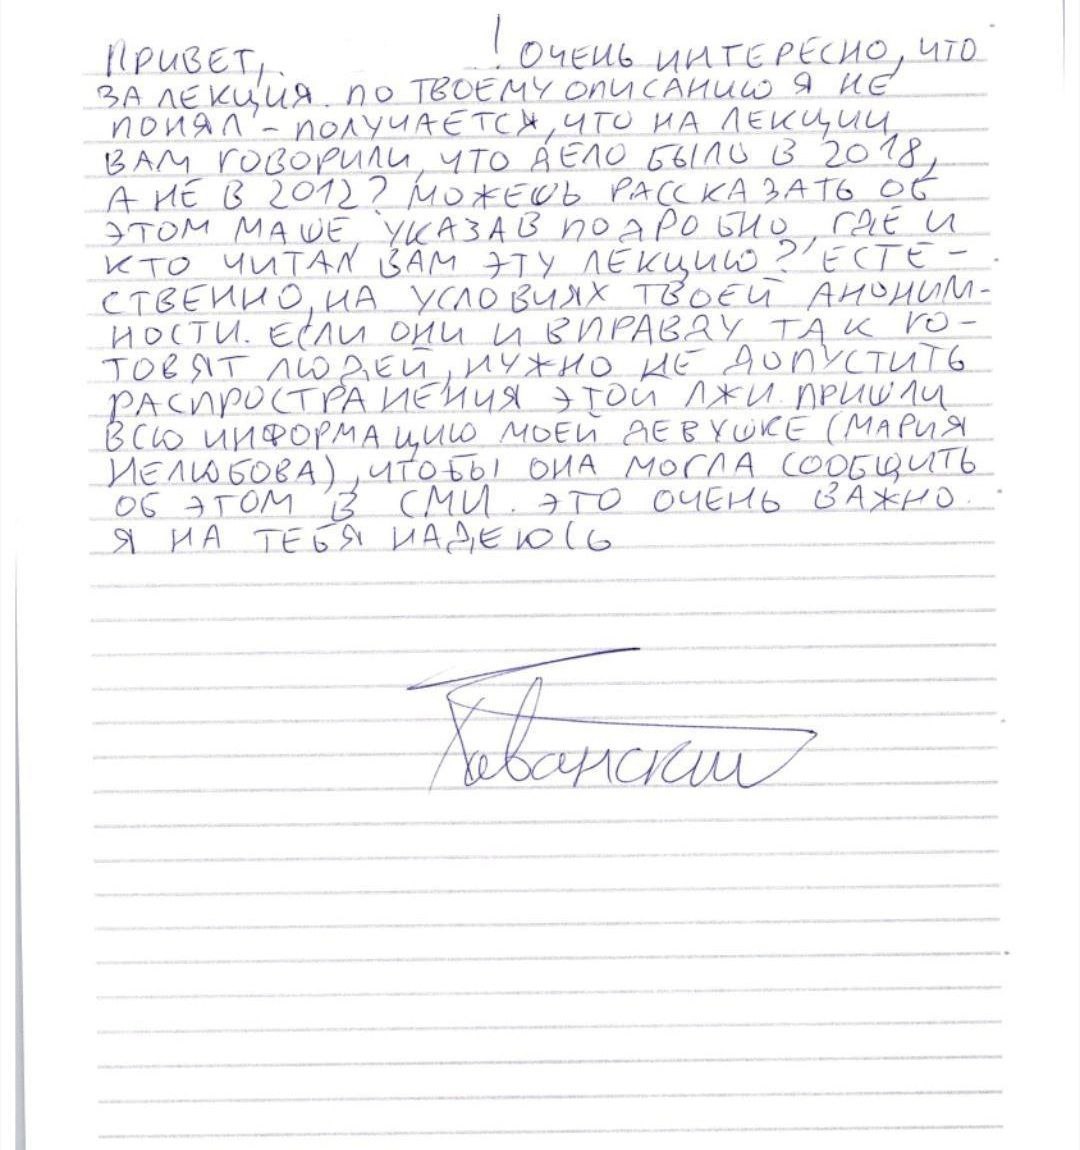 ПРИВЕТ, ! ОЧЕНЬ ИНТЕРЕСНО, ЧТО
ЗА ЛЕКЦИЯ. ПО ТВОЕМУ ОПИСАНИЮ Я НЕ
ПОНЯЛ - ПОЛУЧАЕТСЯ, ЧТО НА ЛЕКЦИИ
ВАМ ГОВОРИЛИ, ЧТО ДЕЛО БЫЛО В 2018,
А НЕ В 2012? МОЖЕШЬ РАССКАЗАТЬ ОБ
ЭТОМ МАШЕ, УКАЗАВ ПОДРОБНО, ГДЕ И
КТО ЧИТАЛ ВАМ ЭТУ ЛЕКЦИЮ? ЕСТЕ-
СТВЕННО, НА УСЛОВИЯХ ТВОЕЙ АНОНИМ-
НОСТИ. ЕСЛИ ОНИ И ВПРАВДУ ТАК ГО-
ТОВЯТ ЛЮДЕЙ, НУЖНО НЕ ДОПУСТИТЬ
РАСПРОСТРАНЕНИЯ ЭТОЙ ЛЖИ. ПРИШЛИ
ВСЮ ИНФОРМАЦИЮ МОЕЙ ДЕВУШКЕ (МАРИЯ
НЕЛЮБОВА), ЧТОБЫ ОНА МОГЛА СООБЩИТЬ
ОБ ЭТОМ В СМИ. ЭТО ОЧЕНЬ ВАЖНО.
Я НА ТЕБЯ НАДЕЮСЬ